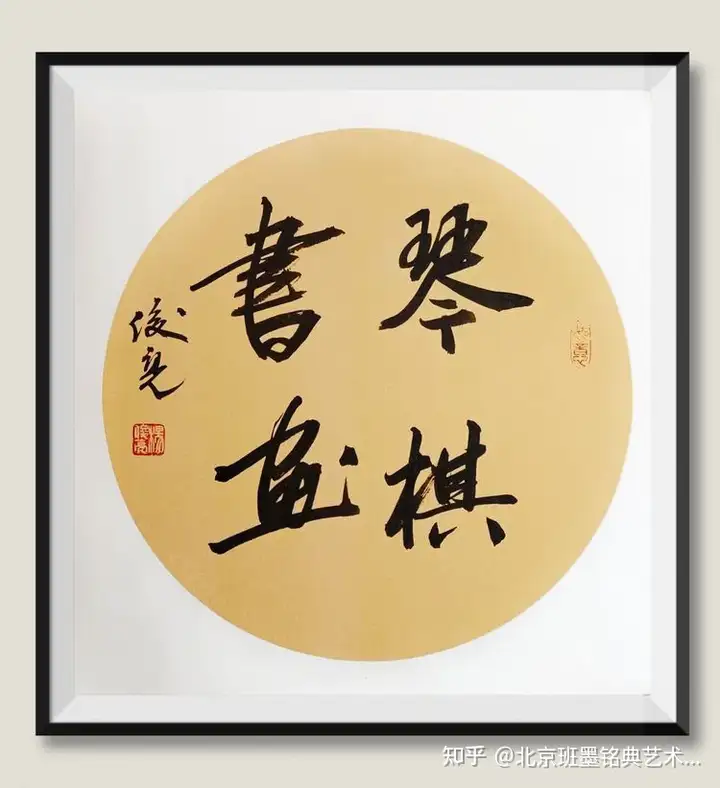 琴棋
書畫
俊亮
如意
知乎 @北京班墨铭典艺术...